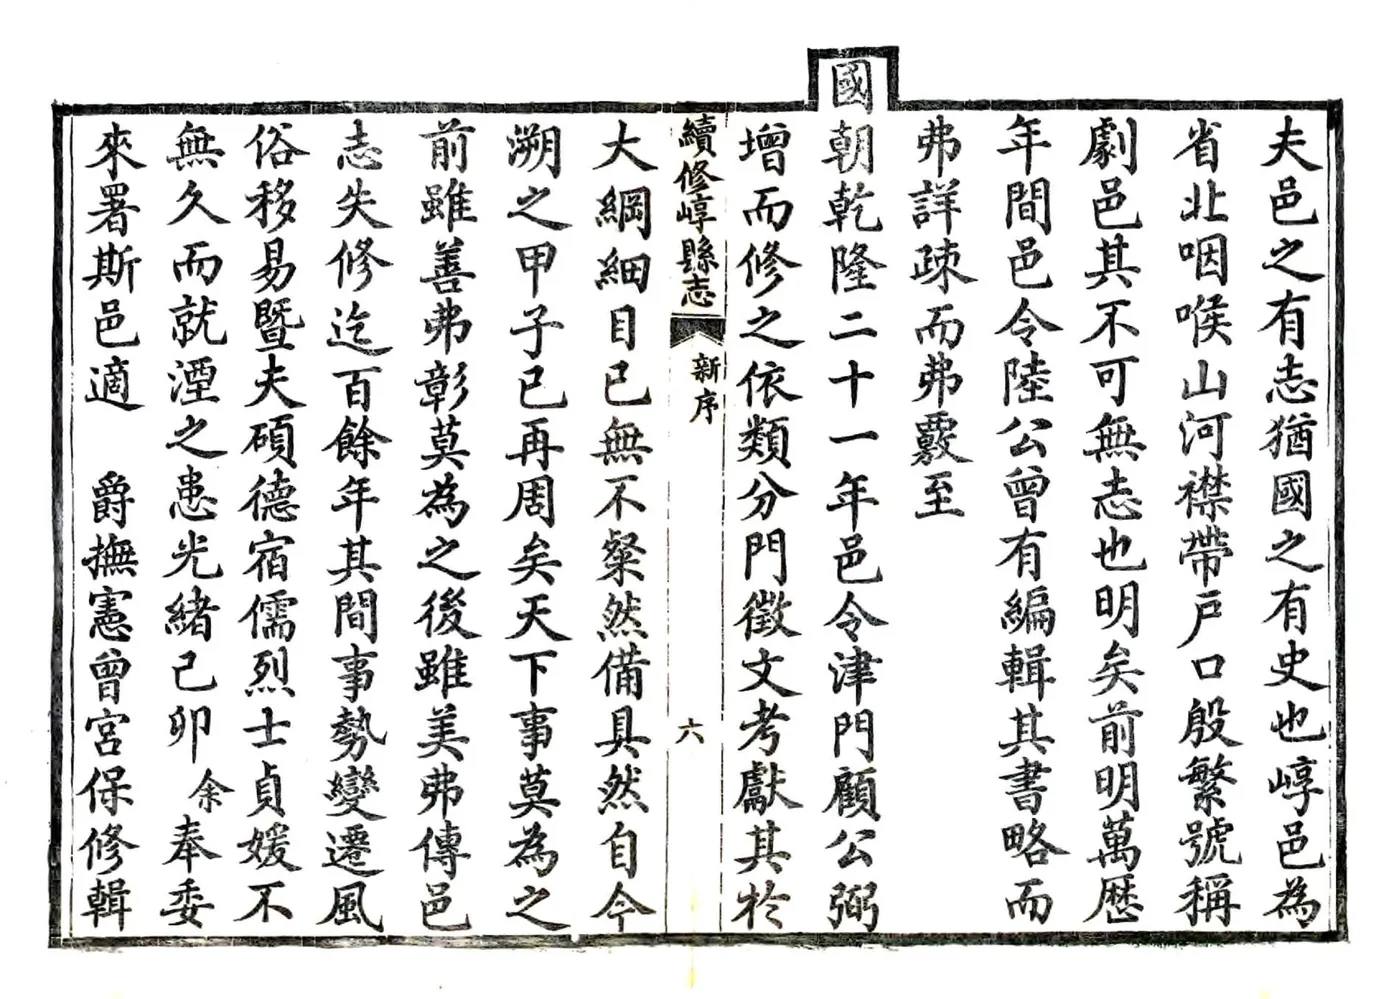 夫邑之有志猶國之有史也崞邑為
省北咽喉山河襟帶戶口殷繁號稱
劇邑其不可無志也明矣前明萬歷
年間邑令陸公曾有編輯其書略而
弗詳疎而弗覈至
國朝乾隆二十一年邑令津門顧公弼
增而修之依類分門徵文考獻其於
續修崞縣志
新序
六
大綱細目已無不粲然備具然自今
溯之甲子已再周矣天下事莫為之
前雖善弗彰莫為之後雖美弗傳邑
志失修迄百餘年其間事勢變遷風
俗移易暨夫碩德宿儒烈士貞媛不
無久而就湮之患光緒己卯余奉委
來署斯邑適　爵撫憲曾宮保修輯